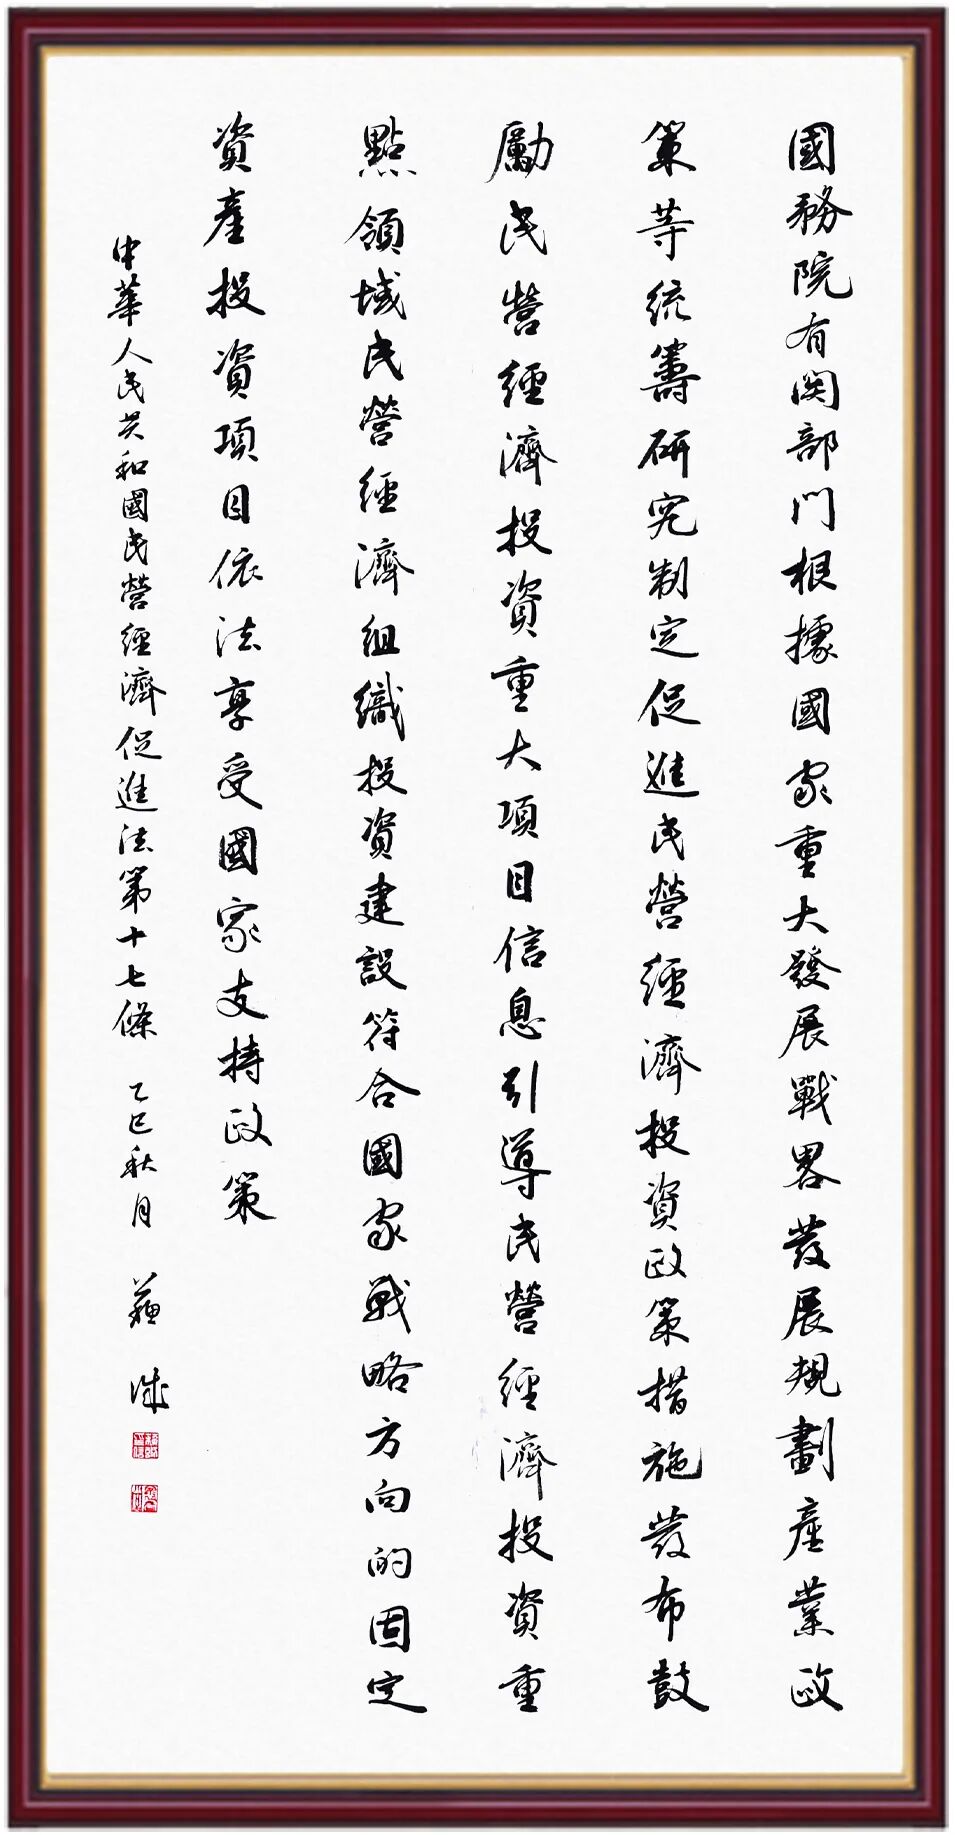 國務院有関部門根據國家重大發展戰畧發展規劃產業政
策等統籌研究制定促進民營經濟投資政策措施發布鼓
勵民營經濟投資重大項目信息引導民營經濟投資重
點領域民營經濟組織投資建設符合國家戰略方向的固定
資產投資項目依法享受國家支持政策
中華人民共和國民營經濟促進法第十七條 乙巳秋月 蘇